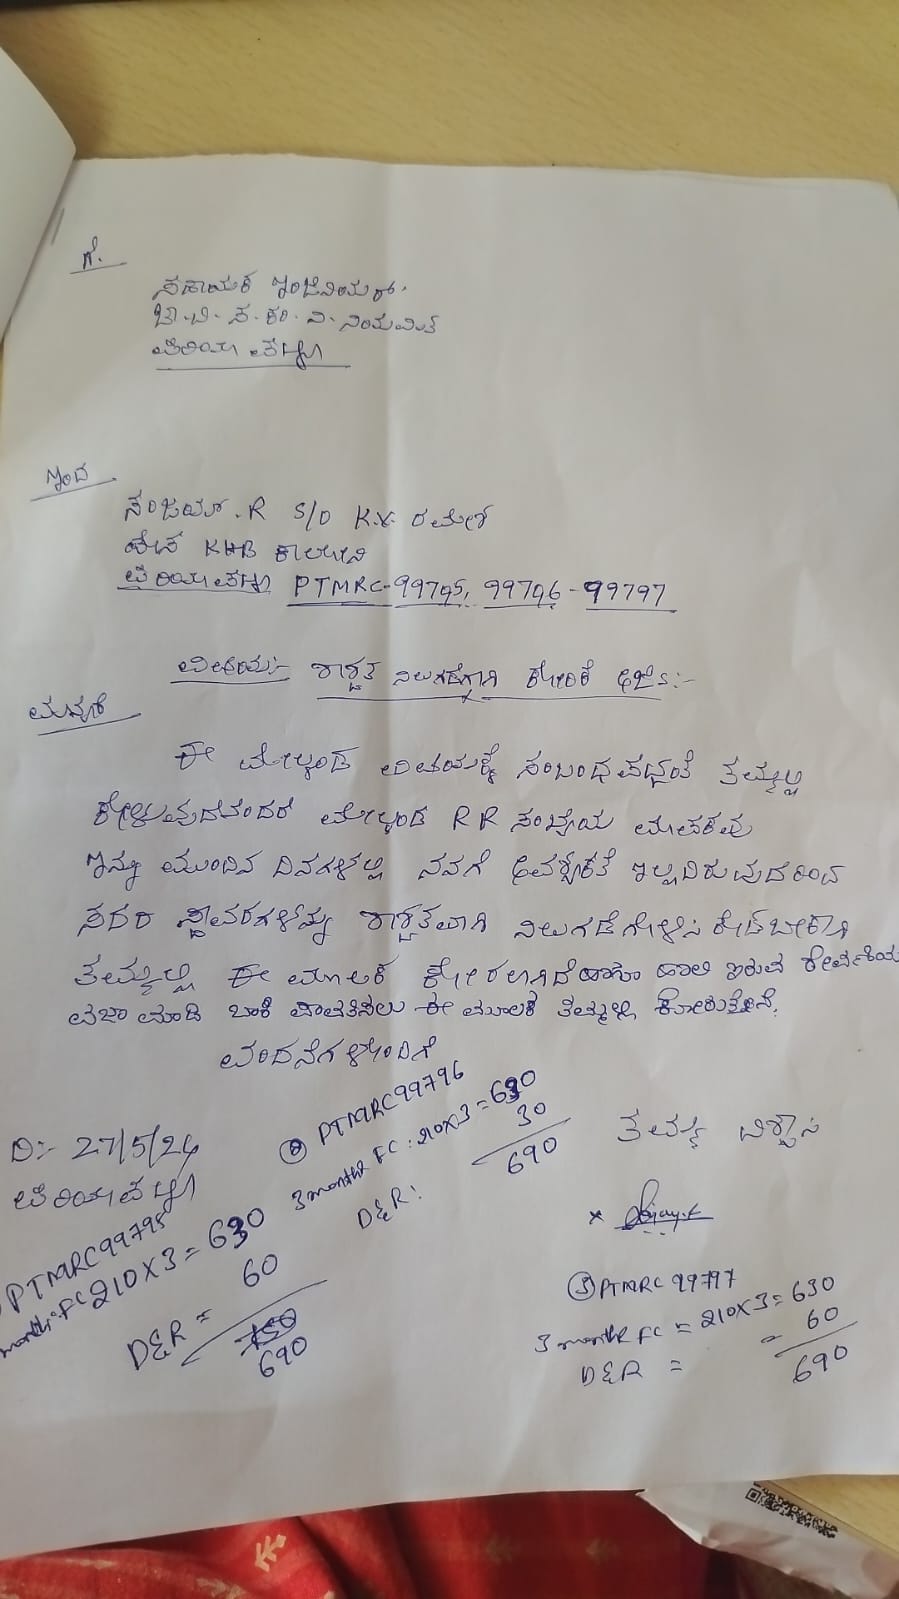 ಗೆ.
ಸಹಾಯಕ ಇಂಜಿನಿಯರ್
ಚಾ.ವಿ.ಸ.ಕಂ.ನಿ. ನಿಯಮಿತ
ಪಿರಿಯಾಪಟ್ಟಣ
ಇಂದ
ಸಂಜಯ್.R S/O K.Y. ರಮೇಶ್
KHB ಕಾಲೋನಿ
ಪಿರಿಯಾಪಟ್ಟಣ PTMRC-99795, 99796 - 99797
ವಿಷಯ:- ಶಾಶ್ವತ ನಿಲುಗಡೆಗಾಗಿ ಕೋರಿಕೆ ಅರ್ಜಿ:-
ಮಾನ್ಯರೆ
ಈ ಮೇಲ್ಕಂಡ ವಿಷಯಕ್ಕೆ ಸಂಬಂಧಪಟ್ಟಂತೆ ತಮ್ಮಲ್ಲಿ
ಕೇಳುವುದೇನಂದರೆ ಮೇಲ್ಕಂಡ RR ಸಂಖ್ಯೆಯ ಮಾಪಕವು
ಇನ್ನು ಮುಂದಿನ ದಿನಗಳಲ್ಲಿ ನನಗೆ ಅವಶ್ಯಕತೆ ಇಲ್ಲದಿರುವುದರಿಂದ
ಸದರಿ ಸ್ಥಾವರಗಳನ್ನು ಶಾಶ್ವತವಾಗಿ ನಿಲುಗಡೆಗೊಳಿಸಿ
ತಮ್ಮಲ್ಲಿ ಈ ಮೂಲಕ ಕೋರಲಾಗಿದೆ ಹಾಗೂ ಹಾಲಿ ಇರುವ ಠೇವಣಿಯ
ವಜಾ ಮಾಡಿ ಬಾಕಿ ಪಾವತಿಸಲು ಈ ಮೂಲಕ ತಮ್ಮಲ್ಲಿ ಕೋರುತ್ತೇನೆ.
ವಂದನೆಗಳೊಂದಿಗೆ
D:- 27/5/24
ಪಿರಿಯಾಪಟ್ಟಣ
ತಮ್ಮ ವಿಶ್ವಾಸಿ
PTMRC99795
month FC 210X3 = 630
D&R = 60
690
② PTMRC99796
3 month FC : 210X3 = 630
D&R: 30
690
③ PTMRC 99797
3 month FC = 210X3 = 630
D&R = = 60
690